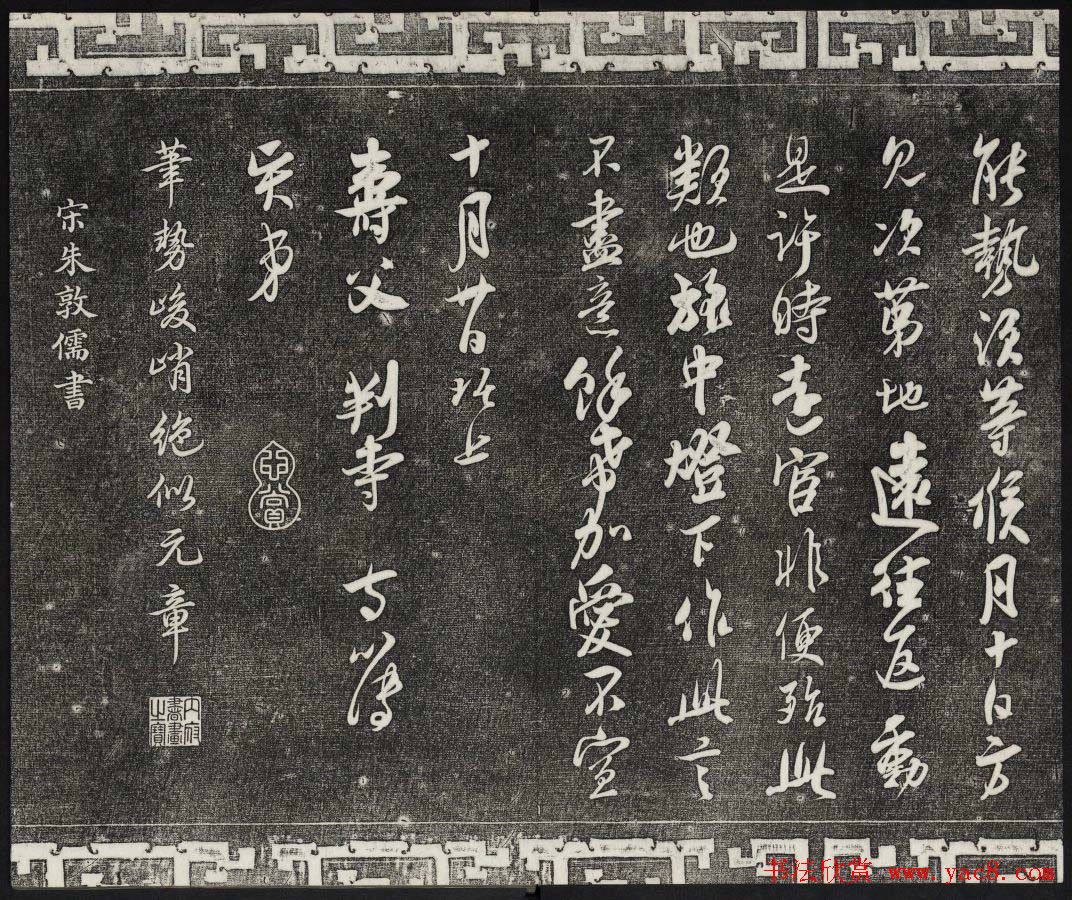 能執須等候月十日方
見次第地遠往返動
是許時遠官非便殆此
類也旅中燈下作此言
不盡意餘希加愛不宣
十月廿日 上
壽父 判寺 
賢弟
筆勢峻峭絕似元章
內府書畫之寶
宋朱敦儒書
书法欣赏 www.yac8.com